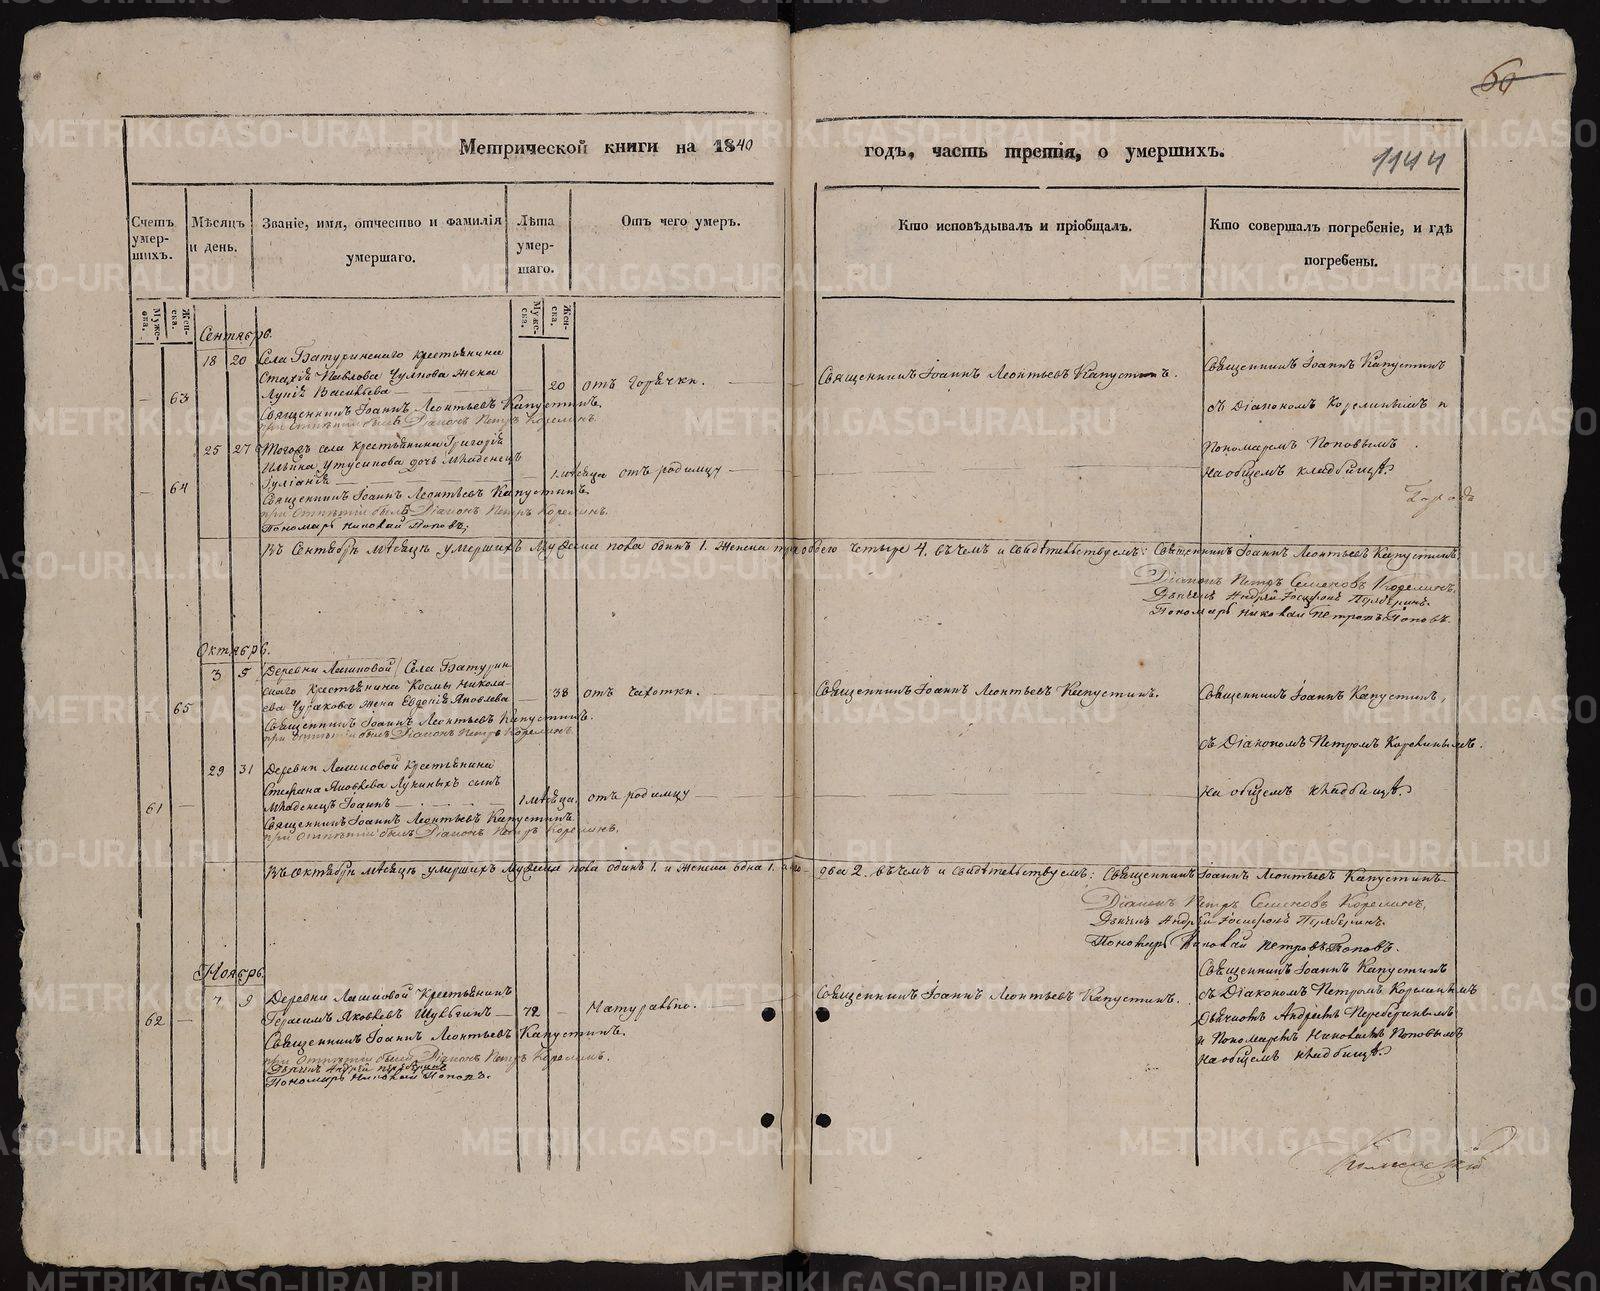 60
Метрической книги на 1840 годъ, часть третія, о умершихъ.
1144
Счетъ умер-шихъ.
Мѣсяцъ и день.
Званіе, имя, отчество и фамилія умершаго.
Лѣта умер-шаго.
Отъ чего умеръ.
Кто исповѣдывалъ и пріобщалъ.
Кто совершалъ погребеніе, и гдѣ погребены.
Муже-ска.
Жен-ска.
Муже-ска.
Жен-ска.
Сентябрь.
63
18 20
Села Батуринскаго крестьянина
Павлова жена
Васильева
20
отъ горячки.
Священникъ Іоаннъ Леонтьевъ Капустинъ.
при отпѣтіи былъ Діаконъ Петръ Корелинъ.
Священникъ Іоаннъ Леонтьевъ Капустинъ.
Священникъ Іоаннъ Капустинъ
съ Діакономъ Корелинымъ и
Пономаремъ Поповымъ
на общемъ кладбищѣ.
64
25 27
Тогожъ села крестьянина Григорія
Ильина дочь младенецъ
Іуліанія
1 мѣсяца
отъ родимцу
Священникъ Іоаннъ Леонтьевъ Капустинъ.
при отпѣтіи былъ Діаконъ Петръ Корелинъ.
Пономарь Николай Поповъ;
Въ Сентябрѣ мѣсяцѣ умершихъ мужеска пола одинъ 1. женска три обоего четыре 4. въ чемъ и свидѣтельствуемъ: Священникъ Іоаннъ Леонтьевъ Капустинъ.
Діаконъ Петръ Семеновъ Корелинъ.
Андрей
Пономарь Николай Петровъ Поповъ.
Октябрь.
65
3 5
Деревни / Села Батурин
скаго крестьянина Космы Никола-
ева жена Евдокія Яковлева
38
отъ чахотки.
Священникъ Іоаннъ Леонтьевъ Капустинъ.
при отпѣтіи былъ Діаконъ Петръ Корелинъ.
Священникъ Іоаннъ Леонтьевъ Капустинъ.
Священникъ Іоаннъ Капустинъ,
съ Діакономъ Петромъ Корелинымъ.
на общемъ кладбищѣ.
61
29 31
Деревни крестьянина
Стефана Яковлева Лукиныхъ сынъ
младенецъ Іоаннъ
1 мѣсяца.
отъ родимцу
Священникъ Іоаннъ Леонтьевъ Капустинъ.
при отпѣтіи былъ Діаконъ Петръ Корелинъ.
Въ Октябрѣ мѣсяцѣ умершихъ мужеска пола одинъ 1. и женска одна 1. два 2. въ чемъ и свидѣтельствуемъ: Священникъ Іоаннъ Леонтьевъ Капустинъ.
Діаконъ Петръ Семеновъ Корелинъ.
Андрей
Пономарь Николай Петровъ Поповъ.
Ноябрь.
62
7 9
Деревни Крестьянинъ
Герасимъ Яковлевъ
72
Натурально.
Священникъ Іоаннъ Леонтьевъ Капустинъ.
при отпѣтіи были Діаконъ Петръ Корелинъ.
Андрей
Пономарь Николай Поповъ.
Священникъ Іоаннъ Леонтьевъ Капустинъ.
Священникъ Іоаннъ Капустинъ
съ Діакономъ Петромъ Корелинымъ
Андреемъ
и Пономаремъ Николаемъ Поповымъ
на общемъ кладбищѣ.
METRIKI.GASO-URAL.RU